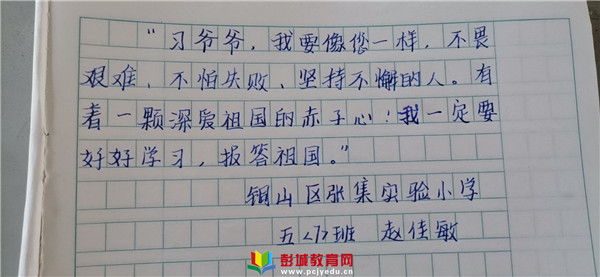 “习爷爷，我要像您一样，不畏
艰难、不怕失败、坚持不懈的人。有
着一颗深爱祖国的赤子心！我一定要
好好学习，报答祖国。”
铜山区张集实验小学
五<7>班 赵佳敏
彭城教育网
www.pcjyedu.cn